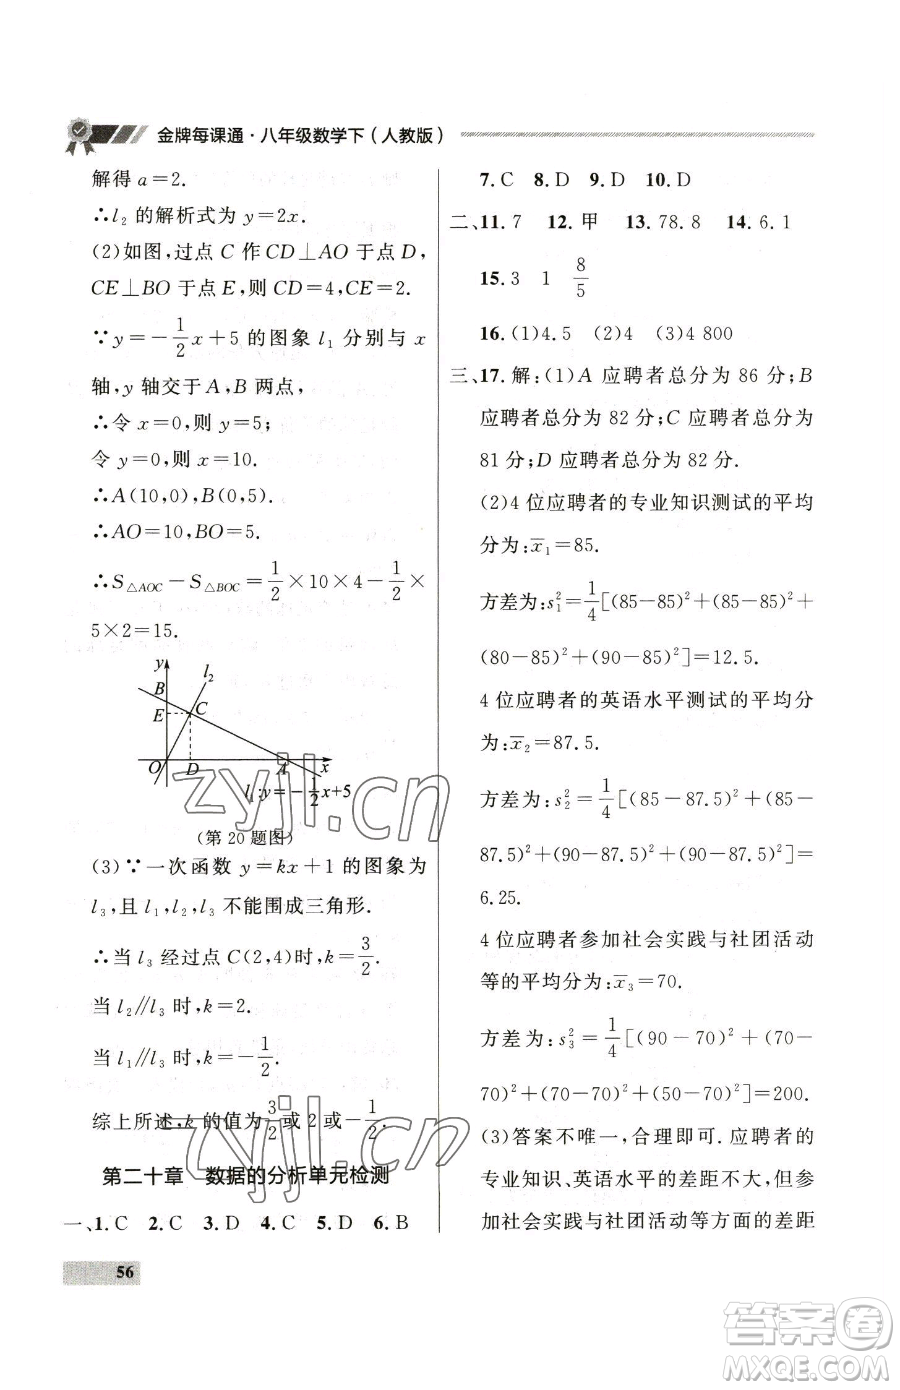 金牌每课通·八年级数学下（人教版）
解得 a=2.
∴l₂ 的解析式为 y=2x.
(2)如图,过点 C 作 CD⊥AO 于点 D,
CE⊥BO 于点 E,则 CD=4,CE=2.
∵y=-1/2x+5 的图象 l₁ 分别与 x
轴,y 轴交于 A,B 两点,
∴令 x=0,则 y=5;
令 y=0,则 x=10.
∴A(10,0),B(0,5).
∴AO=10,BO=5.
∴S△AOC-S△BOC=1/2×10×4-1/2×
5×2=15.
y
l₂
B
E
C
O
D
A
x
l₁:y=-1/2x+5
(第 20 题图)
(3)∵一次函数 y=kx+1 的图象为
l₃,且 l₁,l₂,l₃ 不能围成三角形.
∴当 l₃ 经过点 C(2,4)时,k=3/2.
当 l₂∥l₃ 时,k=2.
当 l₁∥l₃ 时,k=-1/2.
综上所述,k 的值为3/2或 2 或-1/2.
第二十章 数据的分析单元检测
一、1.C 2.C 3.D 4.C 5.D 6.B
7.C 8.D 9.D 10.D
二、11.7 12.甲 13.78.8 14.6.1
15.3 1 8/5
16.(1)4.5 (2)4 (3)4 800
三、17.解:(1)A 应聘者总分为 86 分;B
应聘者总分为 82 分;C 应聘者总分为
81 分;D 应聘者总分为 82 分.
(2)4 位应聘者的专业知识测试的平均
分为:x̄₁=85.
方差为:s₁²=1/4[(85-85)²+(85-85)²+
(80-85)²+(90-85)²]=12.5.
4 位应聘者的英语水平测试的平均分
为:x̄₂=87.5.
方差为:s₂²=1/4[(85-87.5)²+(85-
87.5)²+(90-87.5)²+(90-87.5)²]=
6.25.
4 位应聘者参加社会实践与社团活动
等的平均分为:x̄₃=70.
方差为:s₃²=1/4[(90-70)²+(70-
70)²+(70-70)²+(50-70)²]=200.
(3)答案不唯一,合理即可.应聘者的
专业知识、英语水平的差距不大,但参
加社会实践与社团活动等方面的差距
56
zyjl.cn
zyjl.cn
答案圈
MXQE.COM